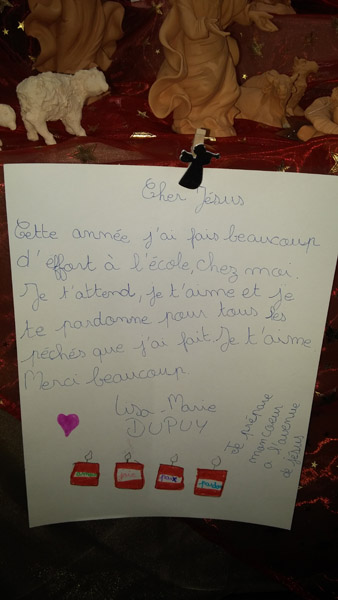 Cher Jésus
Cette année j'ai fais beaucoup
d'effort à l'école, chez moi.
Je t'attend, je t'aime et je
te pardonne pour tous les
péchés que j'ai fait. Je t'aime
Merci beaucoup
Lisa-Marie
DUPUY
Je prépare
mon coeur
a l'avenue
de Jésus
joie
paix
pardon